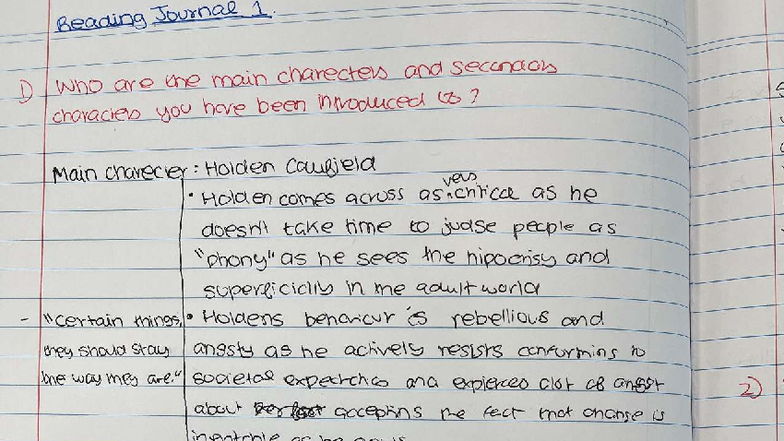 Reading Journal 1.
1) Who are the main charecters and secondary
characters you have been introduced to?
Main charecter: Holden Caulfield
• Holden comes across as very critical as he
doesn't take time to judge people as
"phony" as he sees the hipocrisy and
superficiality in the adult world
- "certain things, they should stay the way they are."
• Holdens behaviour is rebellious and
angsty as he actively resists conforming to
societal expectations and expierces alot of anger
about accepting the fact that change is
2)